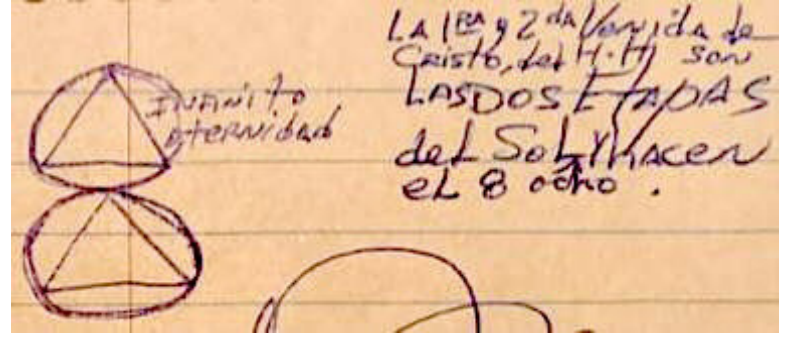 INFINITO
ETERNIDAD
LA 1ERA y 2da Venida de
Cristo, del H.H, son
LAS DOS ETAPAS
del SoL Y HACEN
eL 8 ocho.